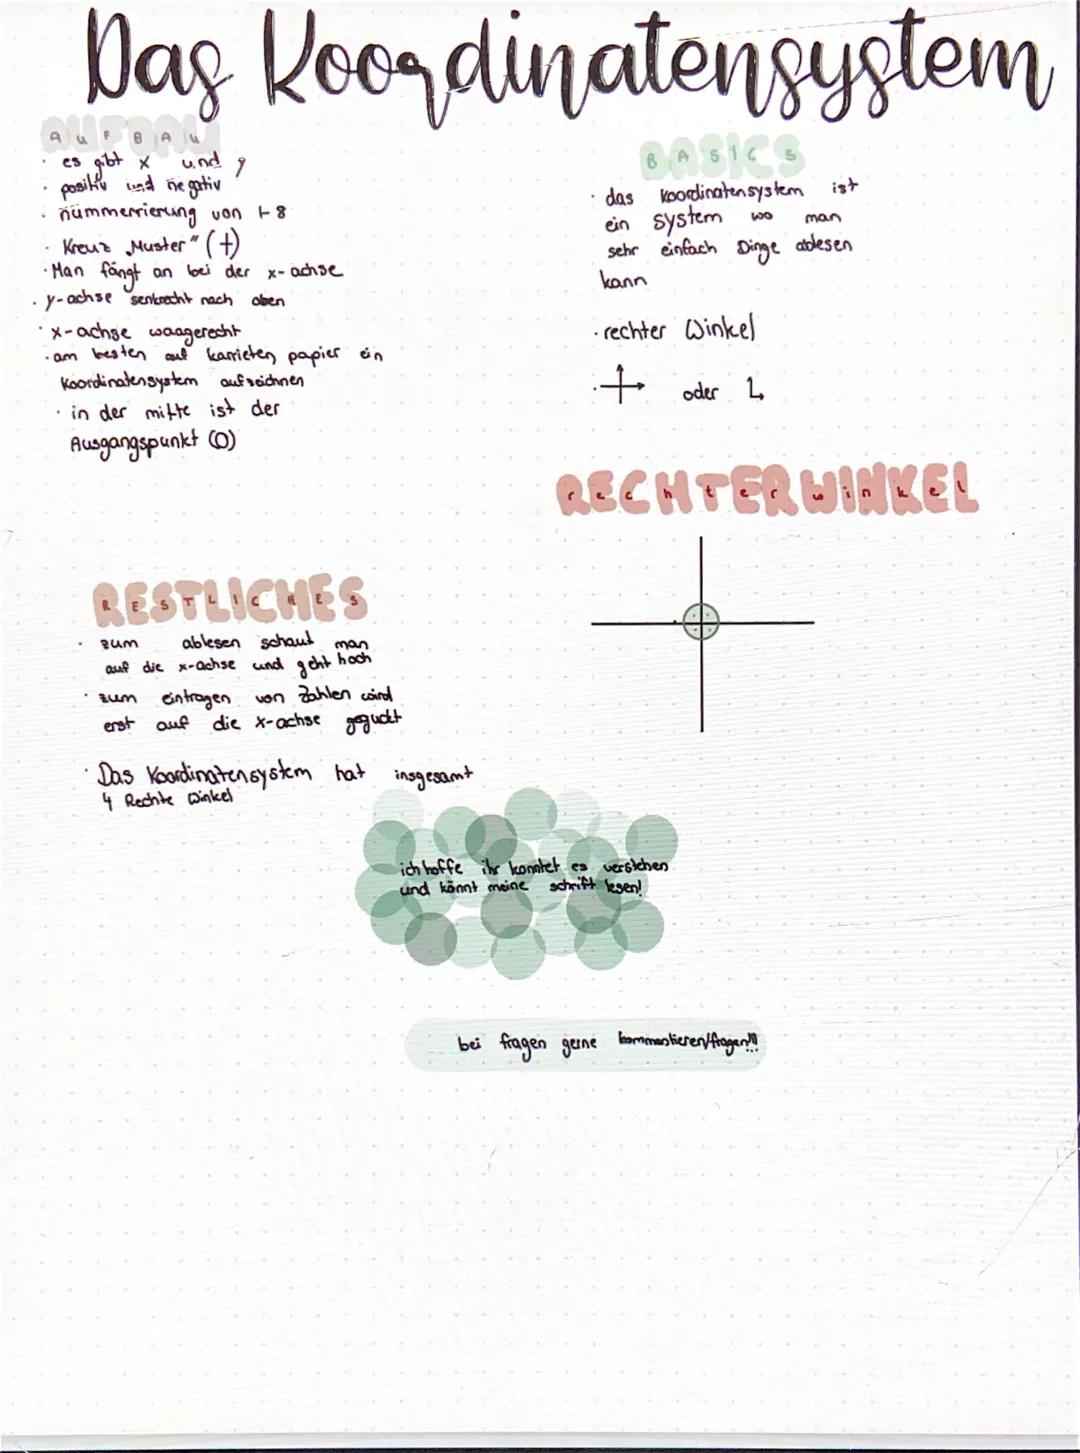 Das Koordinatensystem
AUFBAU
· es gibt x und y
· positiv und negativ
· nummerrierung von 1-8
· Kreuz „Muster" (+)
· Man fängt an bei der x-achse
· y-achse senkrecht nach oben
· x-achse waagerecht
· am besten auf karrieten papier ein
Koordinatensystem aufzeichnen
· in der mitte ist der
Ausgangspunkt (0)
BASICS
· das Koordinatensystem ist
ein system wo man
sehr einfach Dinge ablesen
kann
· rechter Winkel
· oder
RECHTERWINKEL
rechterwinkel
RESTLICHES
· zum ablesen schaut man
auf die x-achse und geht hoch
· zum eintragen von Zahlen wird
erst auf die x-achse geguckt
· Das Koordinatensystem hat insgesamt
4 Rechte Winkel
ich hoffe ihr konntet es verstehen
und könnt meine schrift lesen!
bei fragen gerne kommentieren/fragen!!!